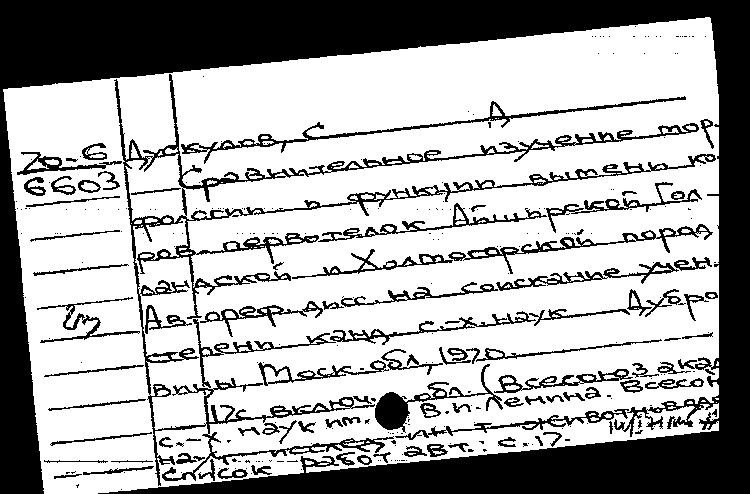 70-6
6603
Дускулов, С А
Сравнительное изучение мор-
фологии и функции вымени ко-
ров-первотелок Айширской, Гол-
ландской и Холмогорской пород.
Автореф. дисс. на соискание учен.
степени канд. с.-х. наук Дубро-
вицы, Моск. обл., 1970.
17с., включ. обл. (Всесоюз. акад.
с.-х. наук им. В.И. Ленина. Всесоюз.
науч. исслед. ин-т животновод
Список работ авт.: с. 17.